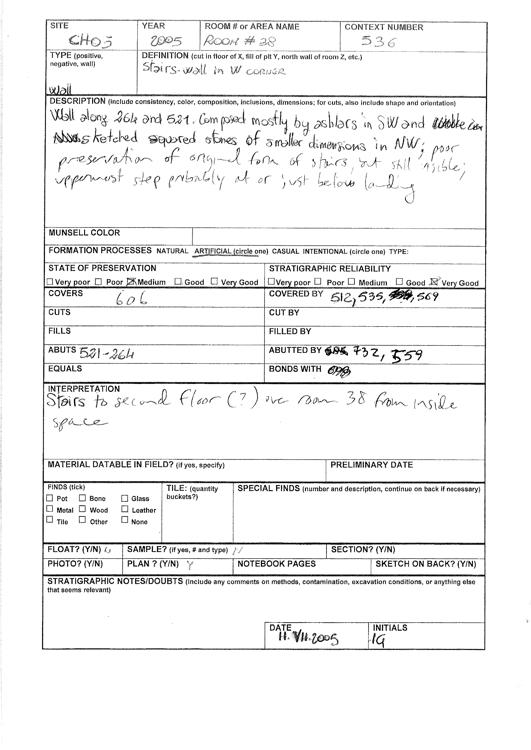 SITE YEAR ROOM # or AREA NAME CONTEXT NUMBER
CH05 2005 ROOM # 38 536
TYPE (positive, negative, wall) DEFINITION (cut in floor of X, fill of pit Y, north wall of room Z, etc.)
Wall Stairs-wall in W CORNER
DESCRIPTION (include consistency, color, composition, inclusions, dimensions; for cuts, also include shape and orientation)
Wall along 264 and 521. Composed mostly by ashlars in SW and
sketched squared stones of smaller dimensions in NW; poor
preservation of original form of stairs, but still visible;
uppermost step probably at or just below landing
MUNSELL COLOR
FORMATION PROCESSES NATURAL ARTIFICIAL (circle one) CASUAL INTENTIONAL (circle one) TYPE:
STATE OF PRESERVATION STRATIGRAPHIC RELIABILITY
☐ Very poor ☐ Poor ☒ Medium ☐ Good ☐ Very Good ☐ Very poor ☐ Poor ☐ Medium ☐ Good ☒ Very Good
COVERS 606 COVERED BY 512, 535, 569
CUTS CUT BY
FILLS FILLED BY
ABUTS 521-264 ABUTTED BY 732, 559
EQUALS BONDS WITH
INTERPRETATION
Stairs to second floor (?) over room 38 from inside
space
MATERIAL DATABLE IN FIELD? (if yes, specify) PRELIMINARY DATE
FINDS (tick) TILE: (quantity buckets?) SPECIAL FINDS (number and description, continue on back if necessary)
☐ Pot ☐ Bone ☐ Glass
☐ Metal ☐ Wood ☐ Leather
☐ Tile ☐ Other ☐ None
FLOAT? (Y/N) SAMPLE? (if yes, # and type) // SECTION? (Y/N)
PHOTO? (Y/N) PLAN ? (Y/N) Y NOTEBOOK PAGES SKETCH ON BACK? (Y/N)
STRATIGRAPHIC NOTES/DOUBTS (Include any comments on methods, contamination, excavation conditions, or anything else
that seems relevant)
DATE INITIALS
11.VII.2005 IG